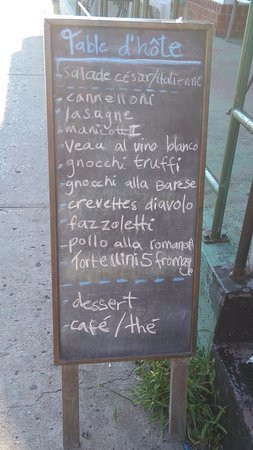 Table d'hôte
- salade césar/italienne
- cannelloni
- lasagne
- manicottI
- veau al vino blanco
- gnocchi truffi
- gnocchi alla Barese
- crevettes diavolo
- fazzoletti
- pollo alla romanoff
- Tortellini 5 fromage
- dessert
- café/thé